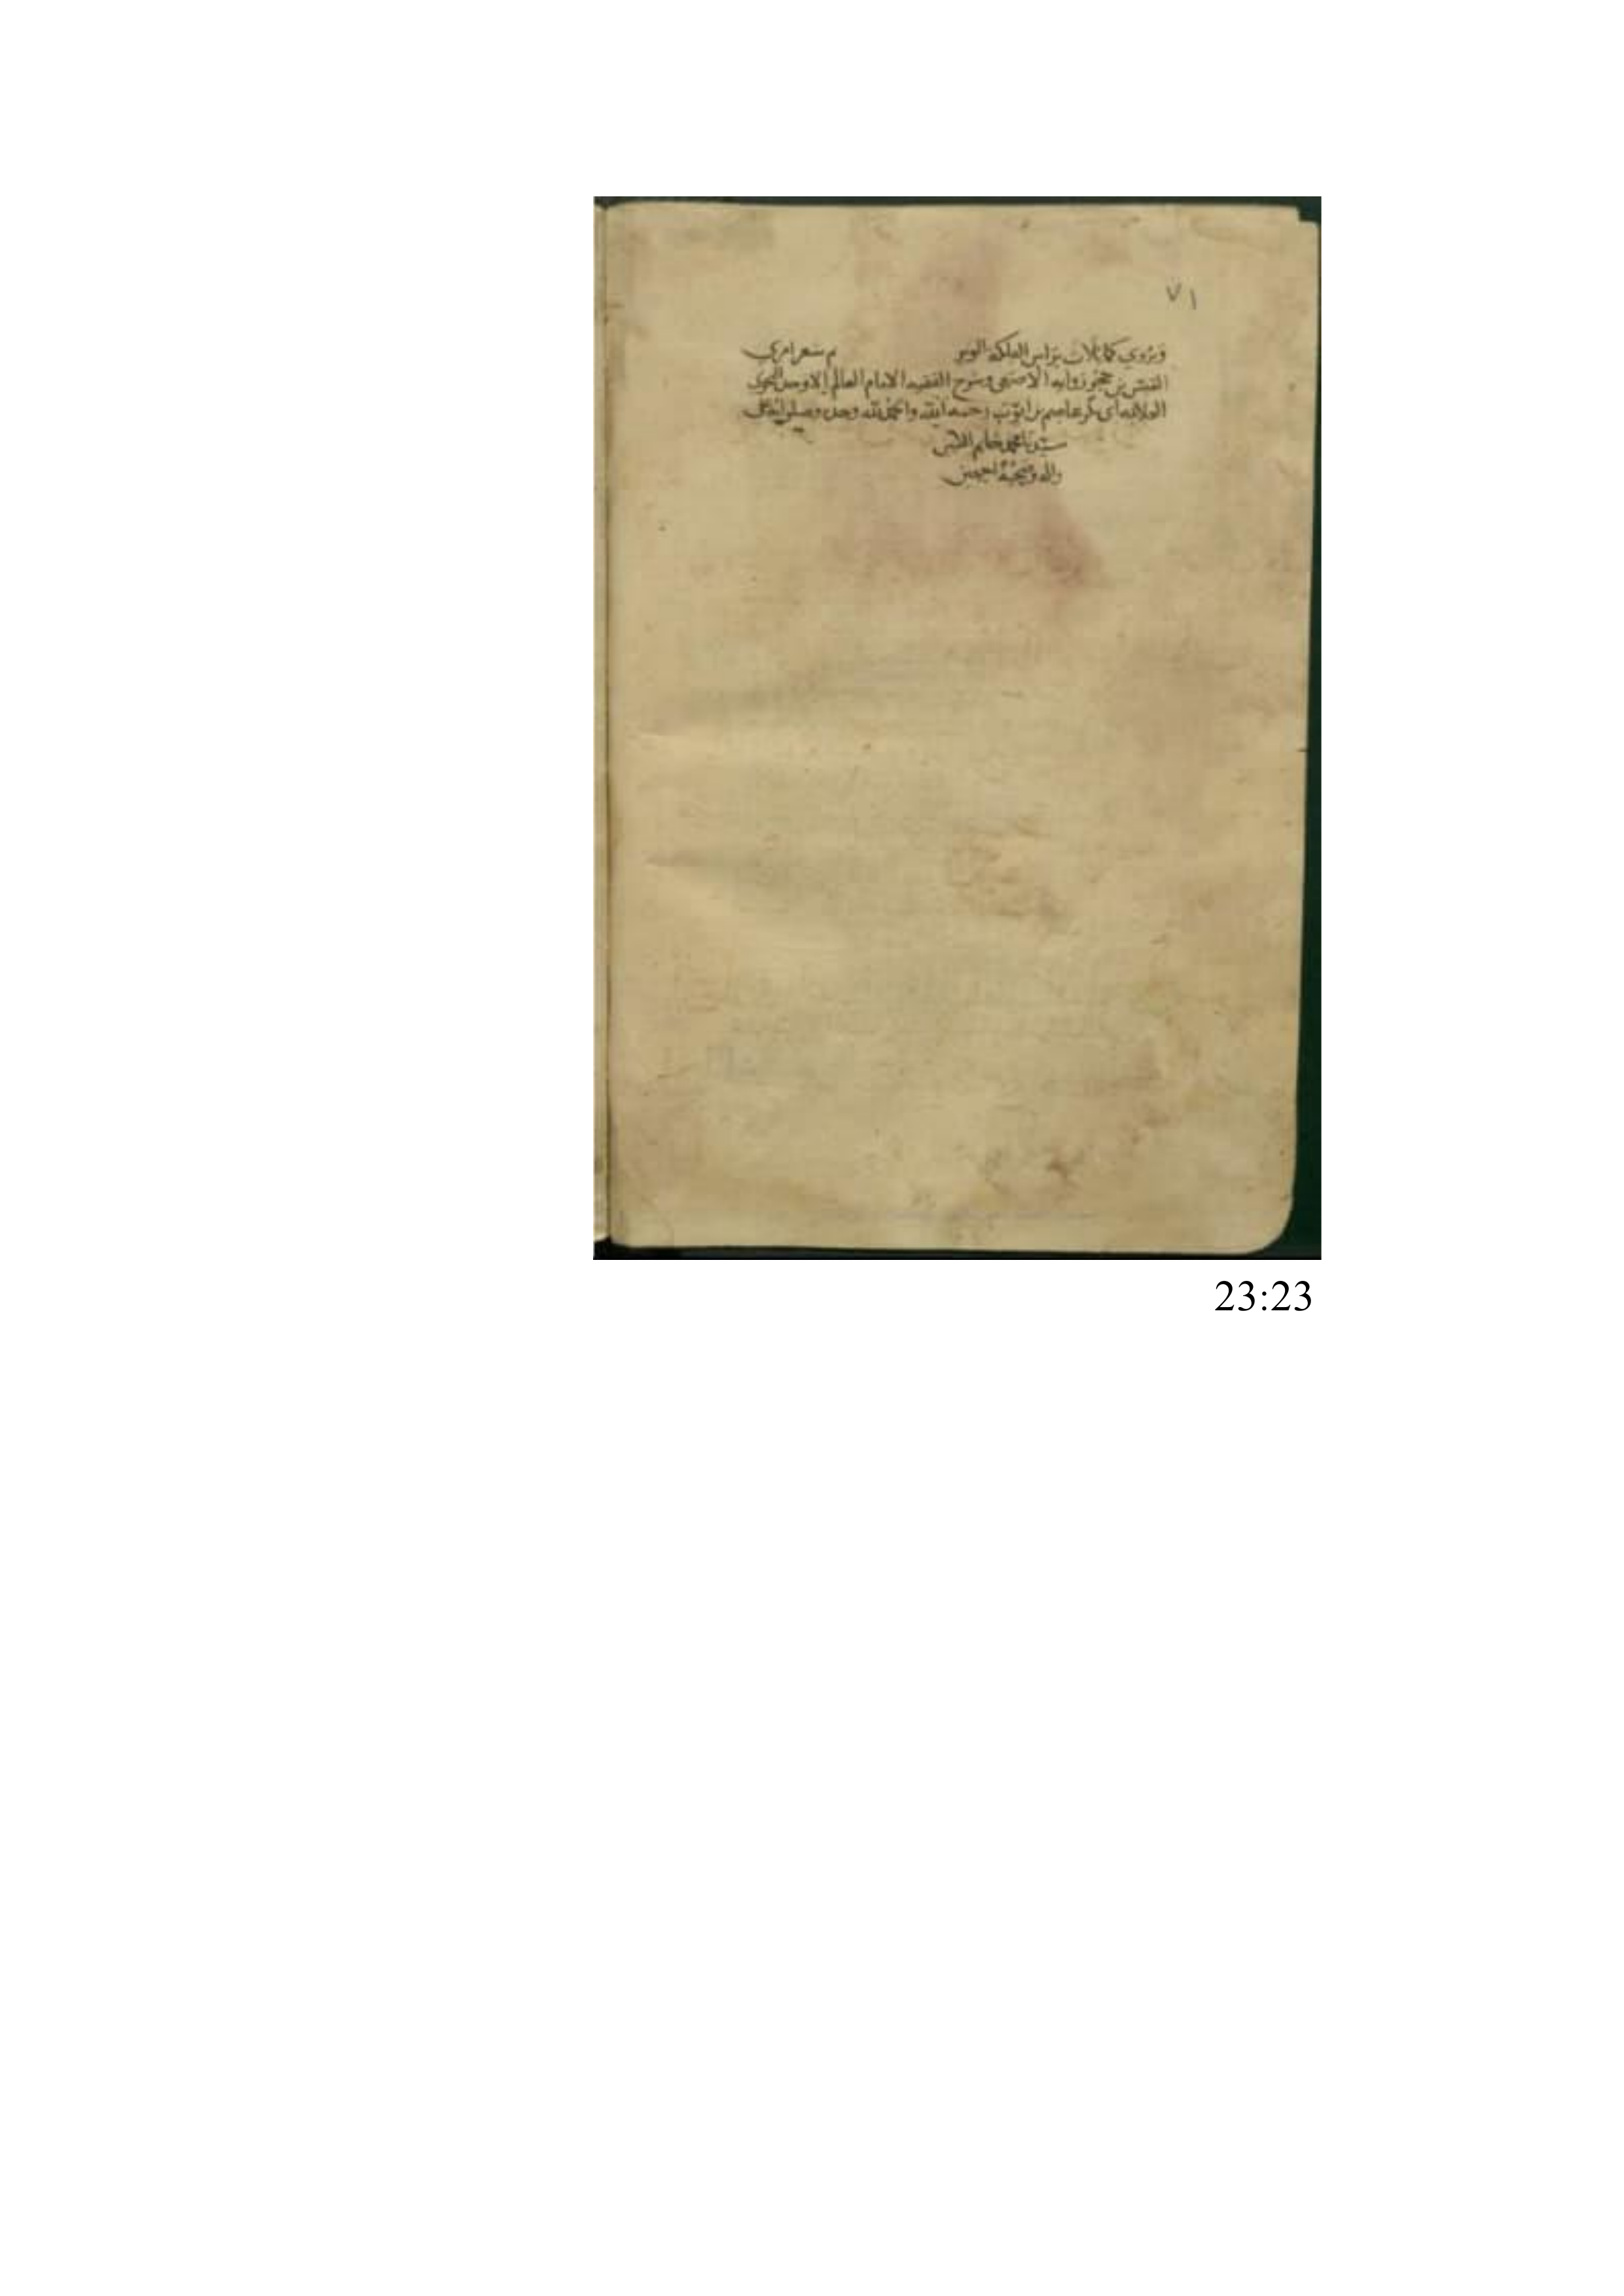 ٧١
ويروي كما بلات براس الفلكة الوبر تم شعر امرئ
القيس بن حجر رواية الاصمعي وشرح الفقيه الامام العالم الاوحد النحوي
ابي بكر عاصم بن ايوب رحمه الله والحمد لله وحده وصلواته على
سيدنا محمد خاتم النبيين
واله وصحبه اجمعين
23:23